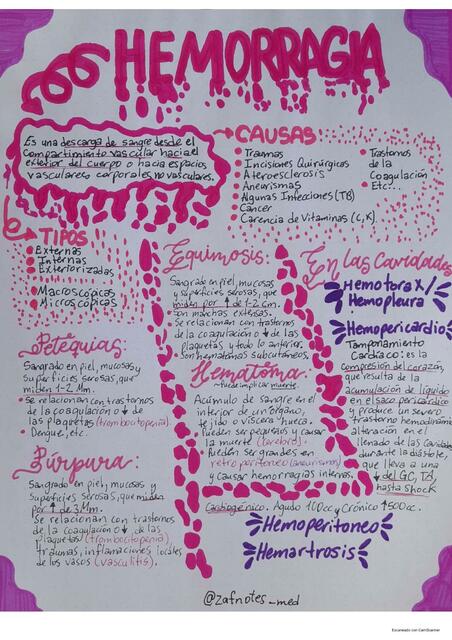 HEMORRAGIA
Es una descarga de sangre desde el
compartimiento vascular hacia el
exterior del cuerpo o hacia espacios
vasculares corporales no vasculares.
CAUSAS
Traumas
Incisiones Quirúrgicas
Ateroesclerosis
Aneurismas
Algunas Infecciones (TB)
Cáncer
Carencia de Vitaminas (C, K)
Trastornos
de la
Coagulación
Etc...
TIPOS
Externas
Internas
Exteriorizadas
Macroscópicas
Microscópicas
Petequias:
Sangrado en piel, mucosas y
superficies serosas, que
miden 1-2 Mm.
• Se relacionan con trastornos
de la coagulación o ↓ de las
plaquetas (trombocitopenia)
• Dengue, etc.
Púrpura:
Sangrado en piel, mucosas y
superficies serosas, que miden
por ↑ de 3 Mm.
Se relacionan con trastornos
de la coagulación o ↓ de las
plaquetas (trombocitopenia),
traumas, inflamaciones locales
de los vasos (vasculitis).
Equimosis:
Sangrado en piel, mucosas
y superficies serosas, que
miden por ↑ de 1-2 Cm.
son manchas extensas.
Se relacionan con trastornos
de la coagulación o ↓ de las
plaquetas y todo lo anterior.
Son hematomas subcutáneos.
Hematoma:
Puede implicar muerte.
Acúmulo de sangre en el
interior de un órgano,
tejido o víscera hueca.
• Pueden ser pequeños y causar
la muerte (cerebro).
• Pueden ser grandes en
retroperitoneo (aneurismas)
y causar hemorragias internas.
En las Cavidades
Hemotorax/
Hemopleura
Hemopericardio
Tamponamiento
Cardíaco: es la
compresión del corazón,
que resulta de la
acumulación de líquido
en el saco pericárdico
y produce un severo
trastorno hemodinámico
alteración en el
llenado de las Cavidades
durante la diástole,
que lleva a una
↓ del GC, TA,
hasta Shock
Cardiogénico. Agudo 100cc y Crónico +500cc.
Hemoperitoneo
Hemartrosis
@zafnotes_med
Escaneado con CamScanner